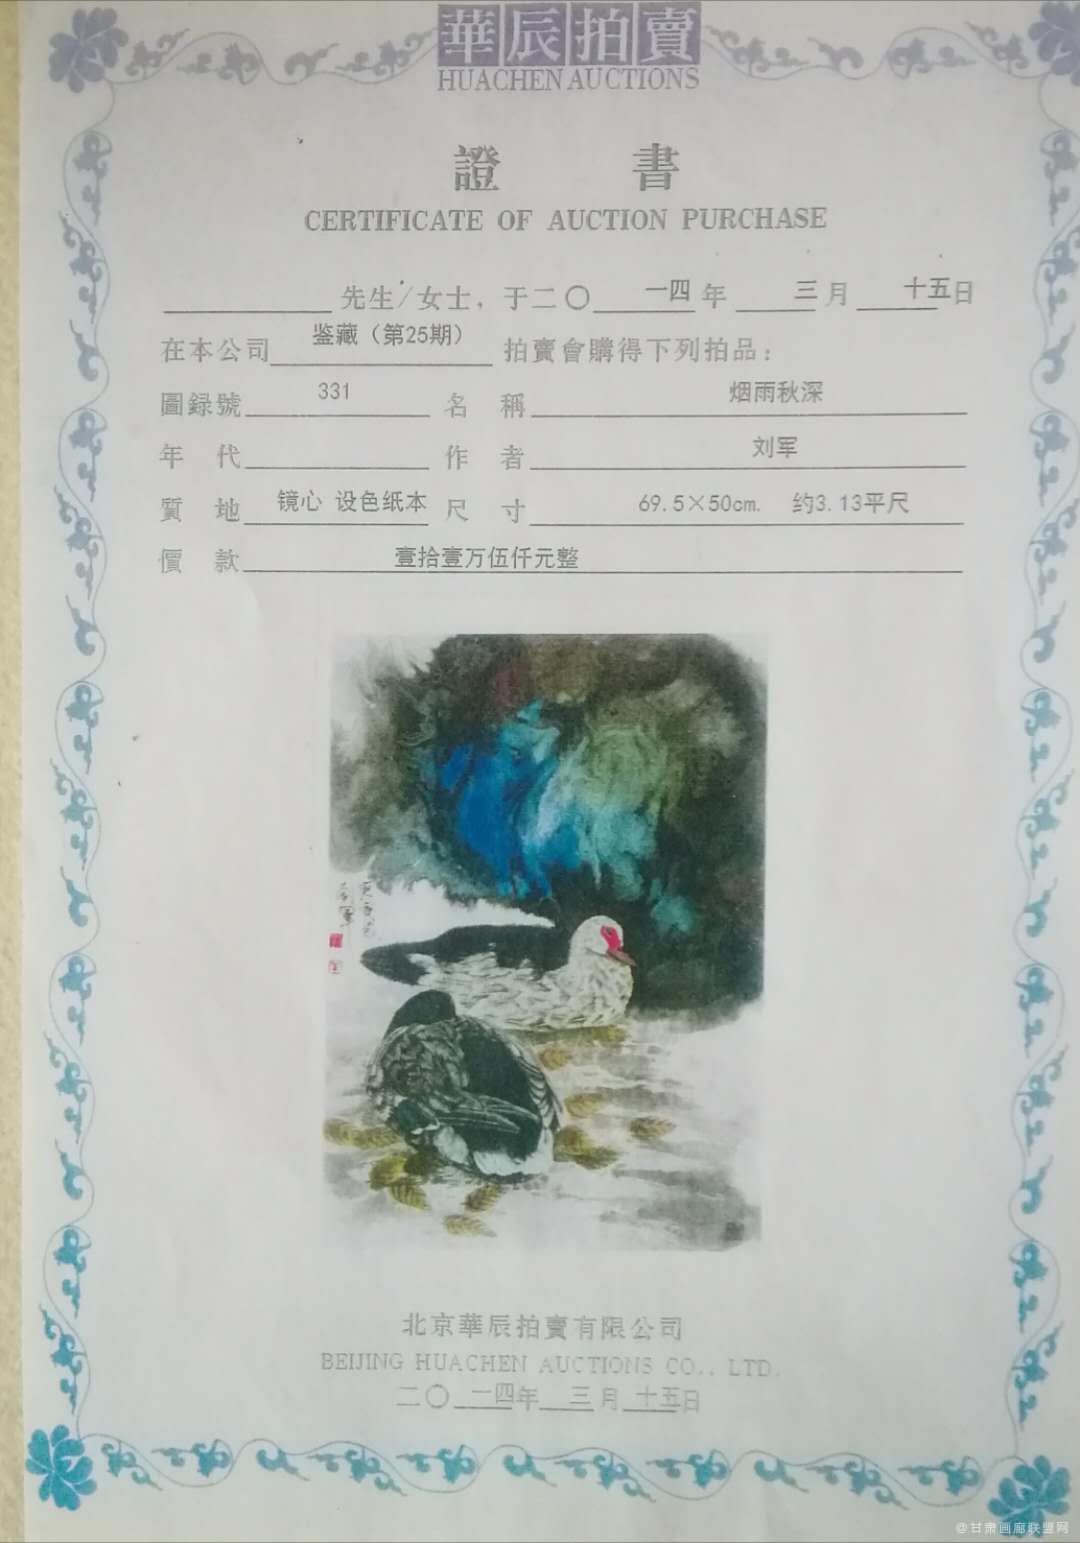 華辰拍賣
HUACHEN AUCTIONS
證 書
CERTIFICATE OF AUCTION PURCHASE
先生/女士，于二〇一四年三月十五日
在本公司鉴藏（第25期）拍賣會購得下列拍品：
圖録號 331 名 稱 烟雨秋深
年 代 作 者 刘军
質 地 镜心 设色纸本 尺 寸 69.5×50cm. 约3.13平尺
價 款 壹拾壹万伍仟元整
北京華辰拍賣有限公司
BEIJING HUACHEN AUCTIONS CO., LTD.
二〇一四年三月十五日
@甘肃画廊联盟网